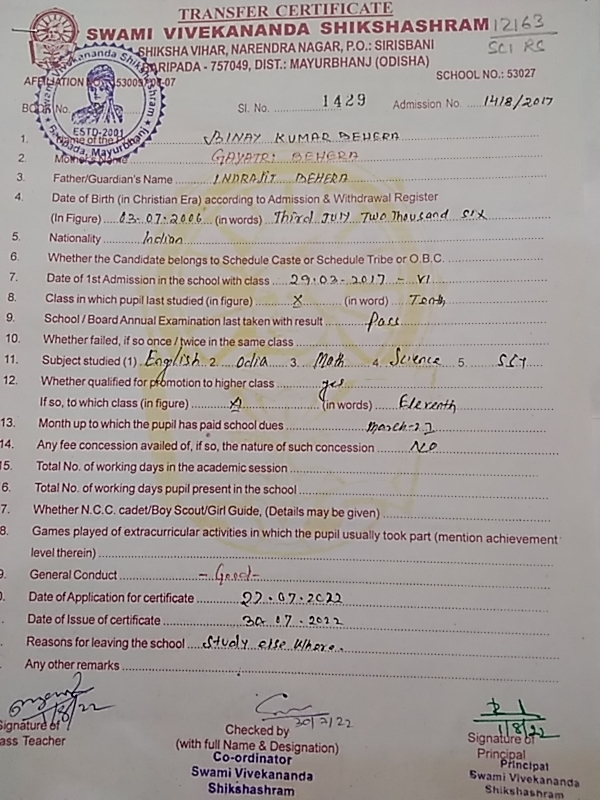 TRANSFER CERTIFICATE
SWAMI VIVEKANANDA SHIKSHASHRAM
12163
SCI RS
SHIKSHA VIHAR, NARENDRA NAGAR, P.O.: SIRISBANI
BARIPADA - 757049, DIST.: MAYURBHANJ (ODISHA)
SCHOOL NO.: 53027
Swami Vivekananda Shikshashram
ESTD-2001
Baripada, Mayurbhanj
Sl. No. 1429 Admission No. 1418/2017
1. Name of the BINAY KUMAR BEHERA
2. Mother's Name GAYATRI BEHERA
3. Father/Guardian's Name INDRAJIT BEHERA
4. Date of Birth (in Christian Era) according to Admission & Withdrawal Register
(In Figure) 03-07-2006 (in words) Third July Two Thousand Six
5. Nationality Indian
6. Whether the Candidate belongs to Schedule Caste or Schedule Tribe or O.B.C.
7. Date of 1st Admission in the school with class 29-03-2017 - VI
8. Class in which pupil last studied (in figure) X (in word) Tenth
9. School / Board Annual Examination last taken with result Pass
10. Whether failed, if so once / twice in the same class
11. Subject studied (1) English 2. Odia 3. Math 4. Science 5.
12. Whether qualified for promotion to higher class yes
If so, to which class (in figure) (in words) Eleventh
13. Month up to which the pupil has paid school dues
14. Any fee concession availed of, if so, the nature of such concession NO
15. Total No. of working days in the academic session
6. Total No. of working days pupil present in the school
7. Whether N.C.C. cadet/Boy Scout/Girl Guide, (Details may be given)
8. Games played of extracurricular activities in which the pupil usually took part (mention achievement
level therein)
General Conduct - Good -
Date of Application for certificate 27.07.2022
Date of Issue of certificate 30.07.2022
Reasons for leaving the school Study else where.
Any other remarks
1/8/22
30/7/22
1/8/22
Signature of
ass Teacher
Checked by
(with full Name & Designation)
Co-ordinator
Swami Vivekananda
Shikshashram
Signature of
Principal
Principal
Swami Vivekananda
Shikshashram